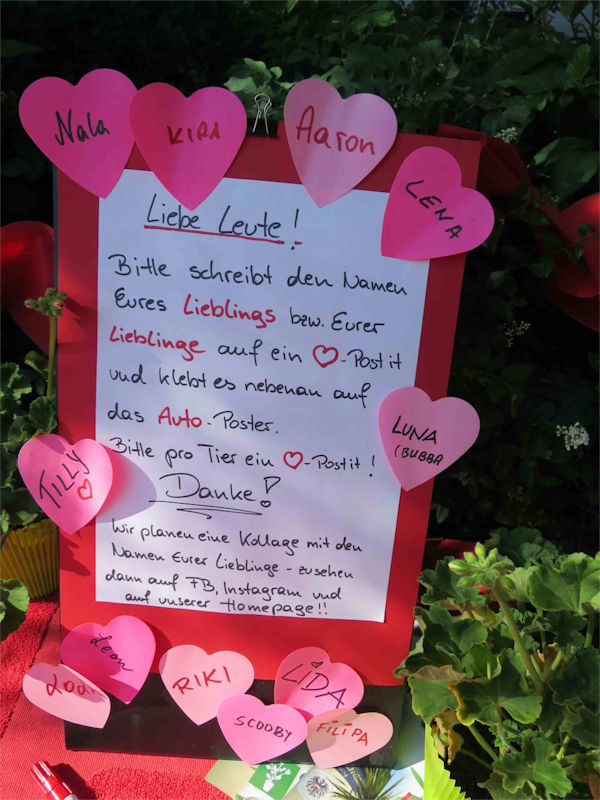 Nala
KIRA
Aaron
LENA
Liebe Leute!
Bitte schreibt den Namen
Eures Lieblings bzw. Eurer
Lieblinge auf ein ♡-Post it
und klebt es nebenan auf
das Auto-Poster.
Bitte pro Tier ein ♡-Postit!
Danke!
Wir planen eine Kollage mit den
Namen Eurer Lieblinge - zu sehen
dann auf FB, Instagram und
auf unserer Homepage!!
LUNA
(BUBBA
TILLY
Leon
RIKI
LIDA
SCOOBY
FILIPA